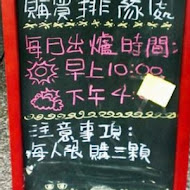 購買排隊處
每日出爐時間:
早上10:00
下午4
注意事項:
每人限購三顆